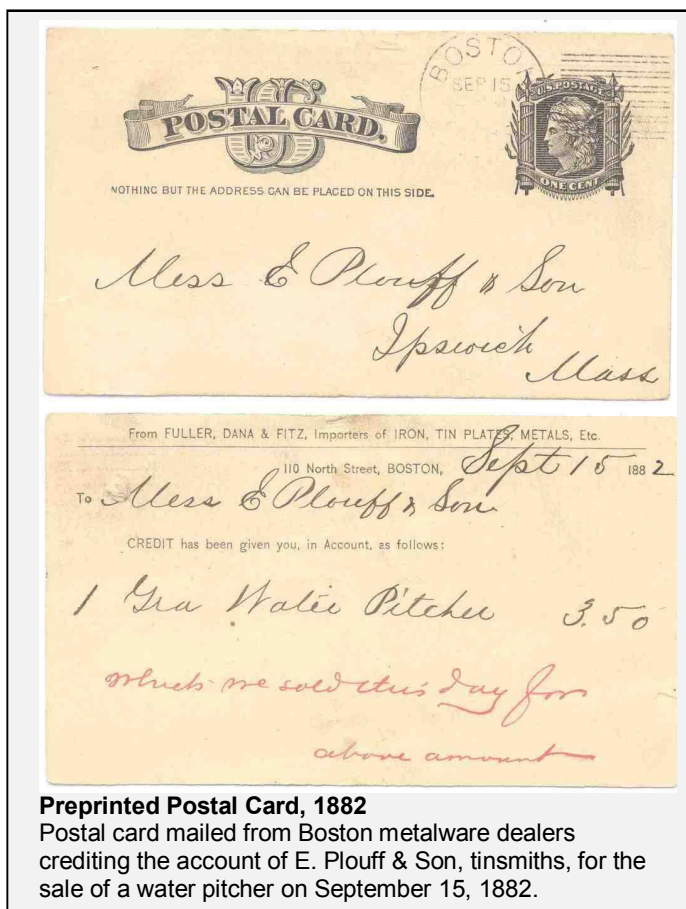 BOSTON
SEP 15
U.S. POSTAGE
US
POSTAL CARD.
ONE CENT
NOTHING BUT THE ADDRESS CAN BE PLACED ON THIS SIDE.
Mess E Plouff & Son
Ipswich
Mass
From FULLER, DANA & FITZ, Importers of IRON, TIN PLATES, METALS, Etc.
110 North Street, BOSTON, Sept 15 1882
To Mess E Plouff & Son
CREDIT has been given you, in Account, as follows:
1 Gra Water Pitcher 3.50
which we sold this day for
above amount
Preprinted Postal Card, 1882
Postal card mailed from Boston metalware dealers
crediting the account of E. Plouff & Son, tinsmiths, for the
sale of a water pitcher on September 15, 1882.